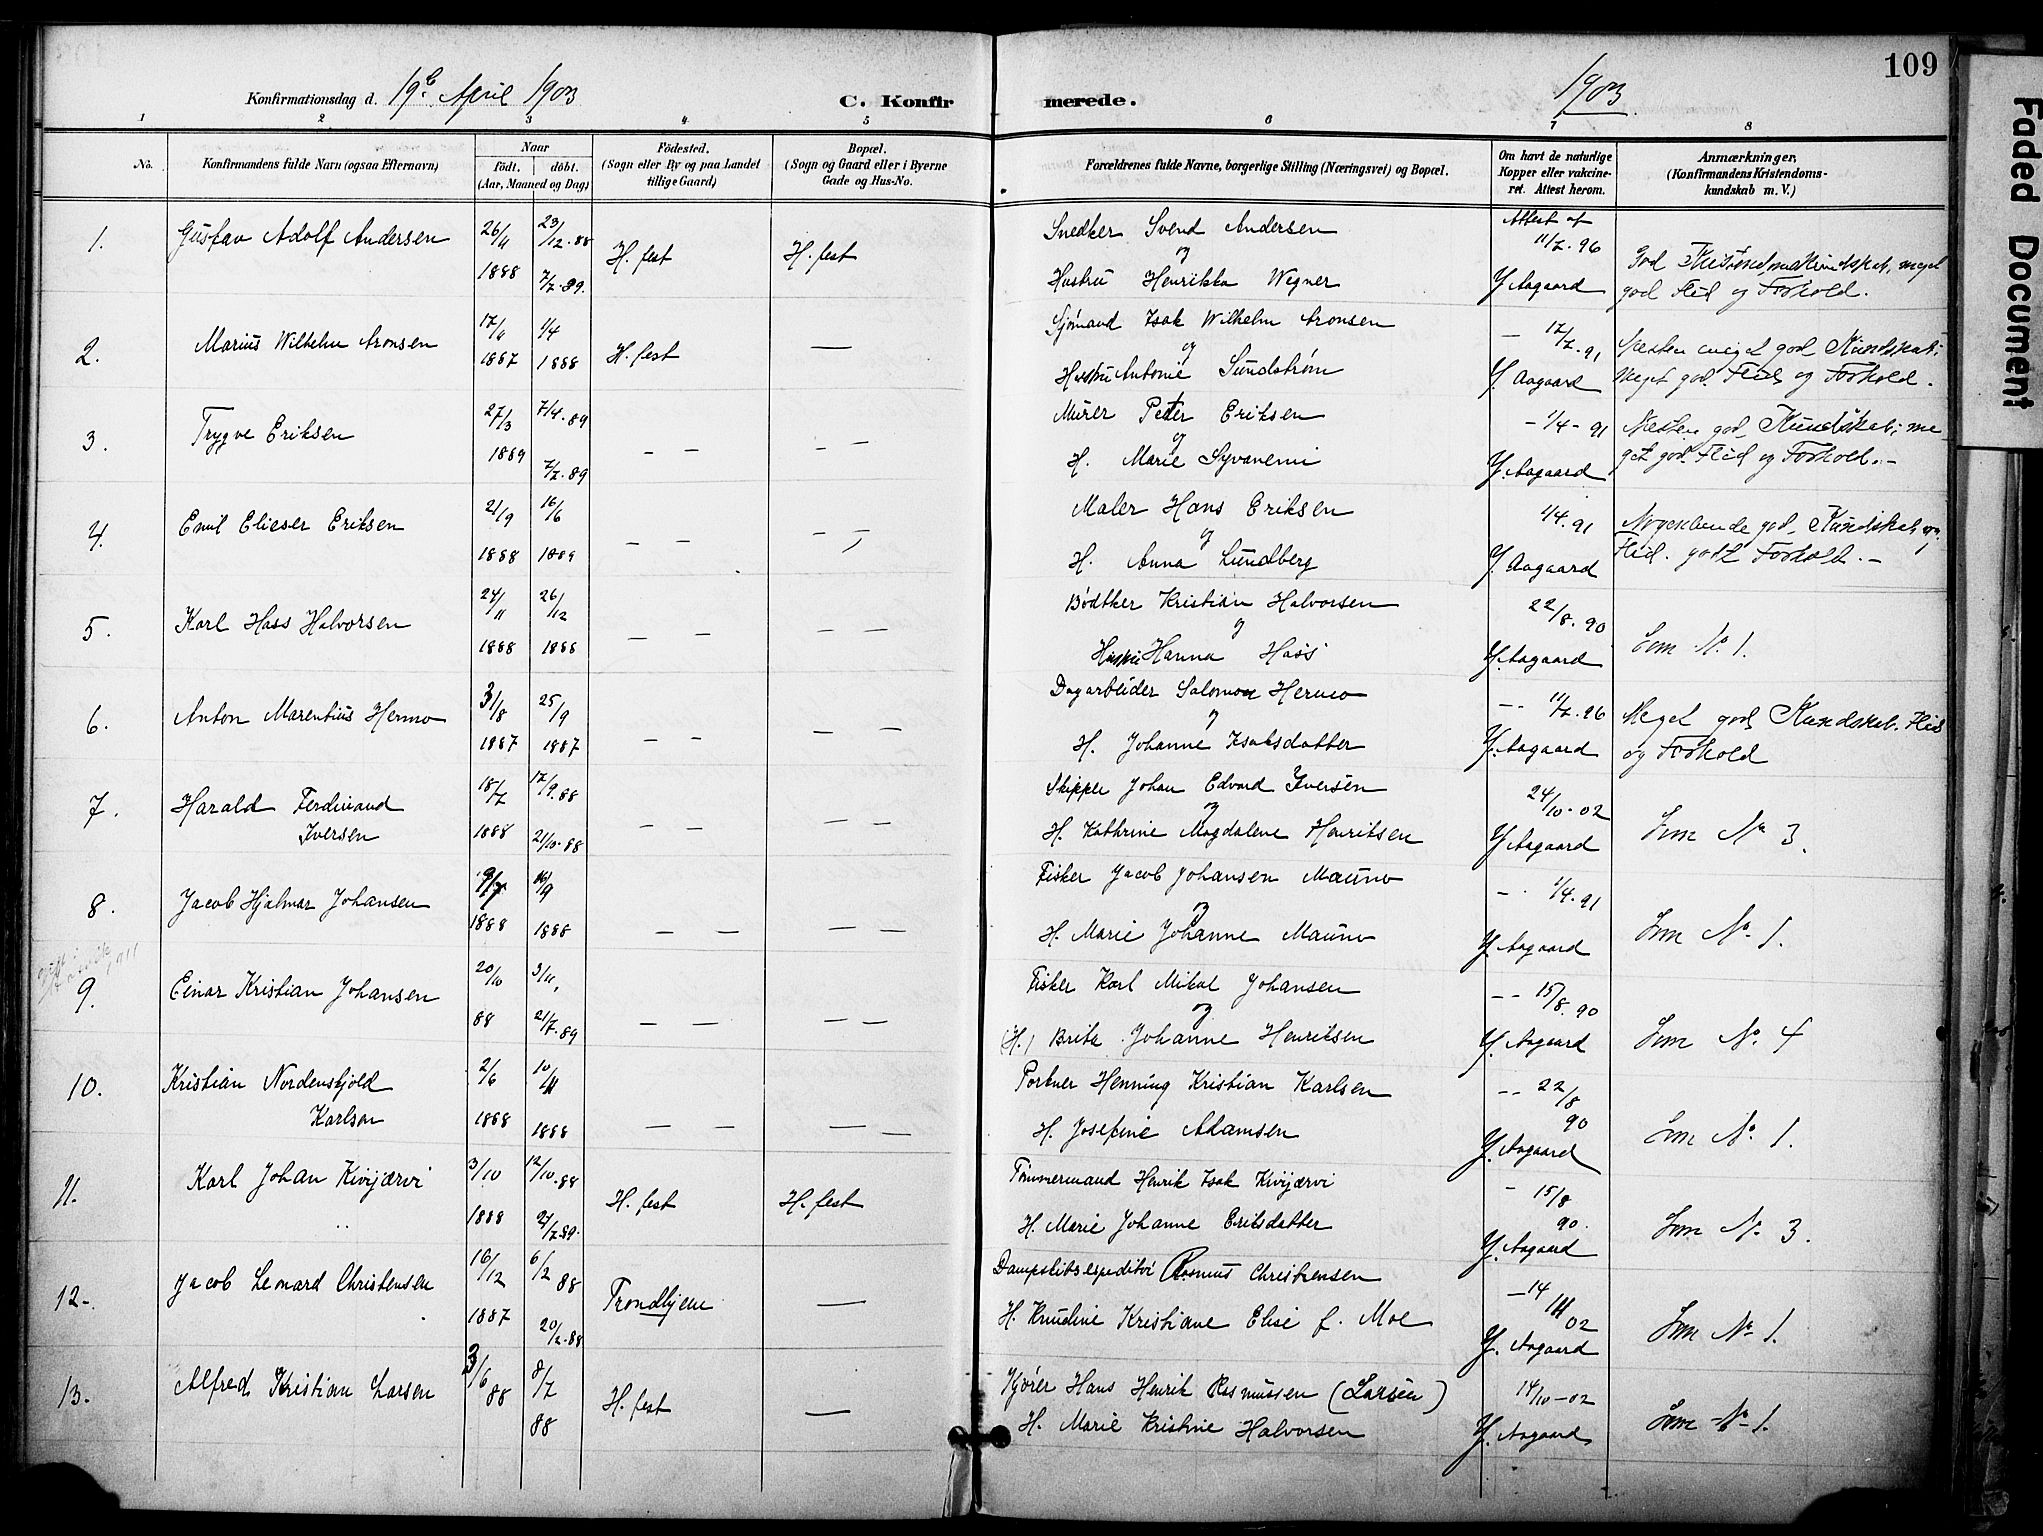 109
Konfirmationsdag d. 19de April 1903 C. Konfirmerede. 1903
1 2 3 4 5 6 7 8
No. Konfirmandens fulde Navn (ogsaa Efternavn) Naar Födt, döbt. (Aar, Maaned og Dag) Födested. (Sogn eller By og paa Landet tillige Gaard) Bopæl. (Sogn og Gaard eller i Byerne Gade og Hus-No. Forældrenes fulde Navne, borgerlige Stilling (Næringsvei) og Bopæl. Om havt de naturlige Kopper eller vakcineret. Attest herom. Anmærkninger, (Konfirmandens Kristendomskundskab m. V.)
1. Gustav Adolf Andersen 26/11 1888 23/12.88 7/7.89. H.fest H.fest Snedker Svend Andersen og Hustru Henrikka Wegner Attest af 11/7.96 J. Aagaard God Kristendomskundskab, meget god Flid og Forhold.
2. Marius Wilhelm Aronsen 17/11 1887 1/4 1888 H.fest — Sjömand Isak Wilhelm Aronsen og Hustru Antonie Sundström – 17/7.91 J. Aagaard Næsten meget god Kundskab; Meget god Flid og Forhold.
3. Trygve Eriksen 27/3 1889 7/4.89 7/7.89 – – – – Murer Peter Eriksen og H. Marie Syvanemi – 1/4-91 J. Aagaard Næsten god Kundskab; meget god Flid og Forhold. –
4. Emil Elieser Eriksen 21/9 1888 16/6 1889 – – – – Maler Hans Eriksen og H. Anna Lundberg 1/4.91 J. Aagaard Nogenlunde god Kundskab og Flid. godt Forhold. –
5. Karl Hass Halvorsen 24/11 1888 26/12 1888 – – – – Bödtker Kristian Halvorsen og Hustru Hanna Hass 22/8.90 J. Aagaard Som No. 1.
6. Anton Marentius Hermo 3/8 1887 25/9 1887 – – – – Dagarbeider Salomon Hermo og H. Johanne Isaksdatter – – 11/7.96 J. Aagaard Meget god Kundskab. Flid og Forhold
7. Harald Ferdinand Iversen 18/7 1888 17/9.88 21/10.88 – – – – Skipper Johan Edvard Iversen og H. Kathrine Magdalene Henriksen 24/10-02 J. Aagaard Som No 3.
8. Jacob Hjalmar Johansen 9/7 1888 16/9 1888 – – – – Fisker Jacob Johansen Mauno og H. Marie Johanne Mauno – . 1/4.91 J. Aagaard Som No. 1.
9. Einar Kristian Johansen 20/10 88 3/11, 21/7.89 – – – – Fisker Karl Mikal Johansen og (H.) Brita Johanne Henriksen – – 15/8.90 J. Aagaard Som No. 4
10. Kristian Nordenskjold Karlsen 2/6 1888 10/11 1888 – – – – Portner Henning Kristian Karlsen H. Josefine Adamsen – – 22/8 90 J. Aagaard Som No. 1.
11. Karl Johan Kivijærvi 3/10 1888 12/10.88 21/7.89. H.fest H.fest Tömmermand Henrik Isak Kivijærvi H. Marie Johanne Eriksdatter – 15/8 90. J. Aagaard Som No. 3.
12. Jacob Leonard Christensen 16/12 1887 6/2 88 20/2.88 Trondhjem — Dampskibsexpeditör Rasmus Christensen H. Knudine Kristiane Elise f. Moe – 14/11 02 J. Aagaard Som No. 1.
13. Alfred Kristian Larsen 3/6 88 8/7 88 H.fest — Kjörer Hans Henrik Rasmussen (Larsen) H. Marie Kristine Halvorsen 14/10-02 J. Aagaard Som No. 1.
Faded Document